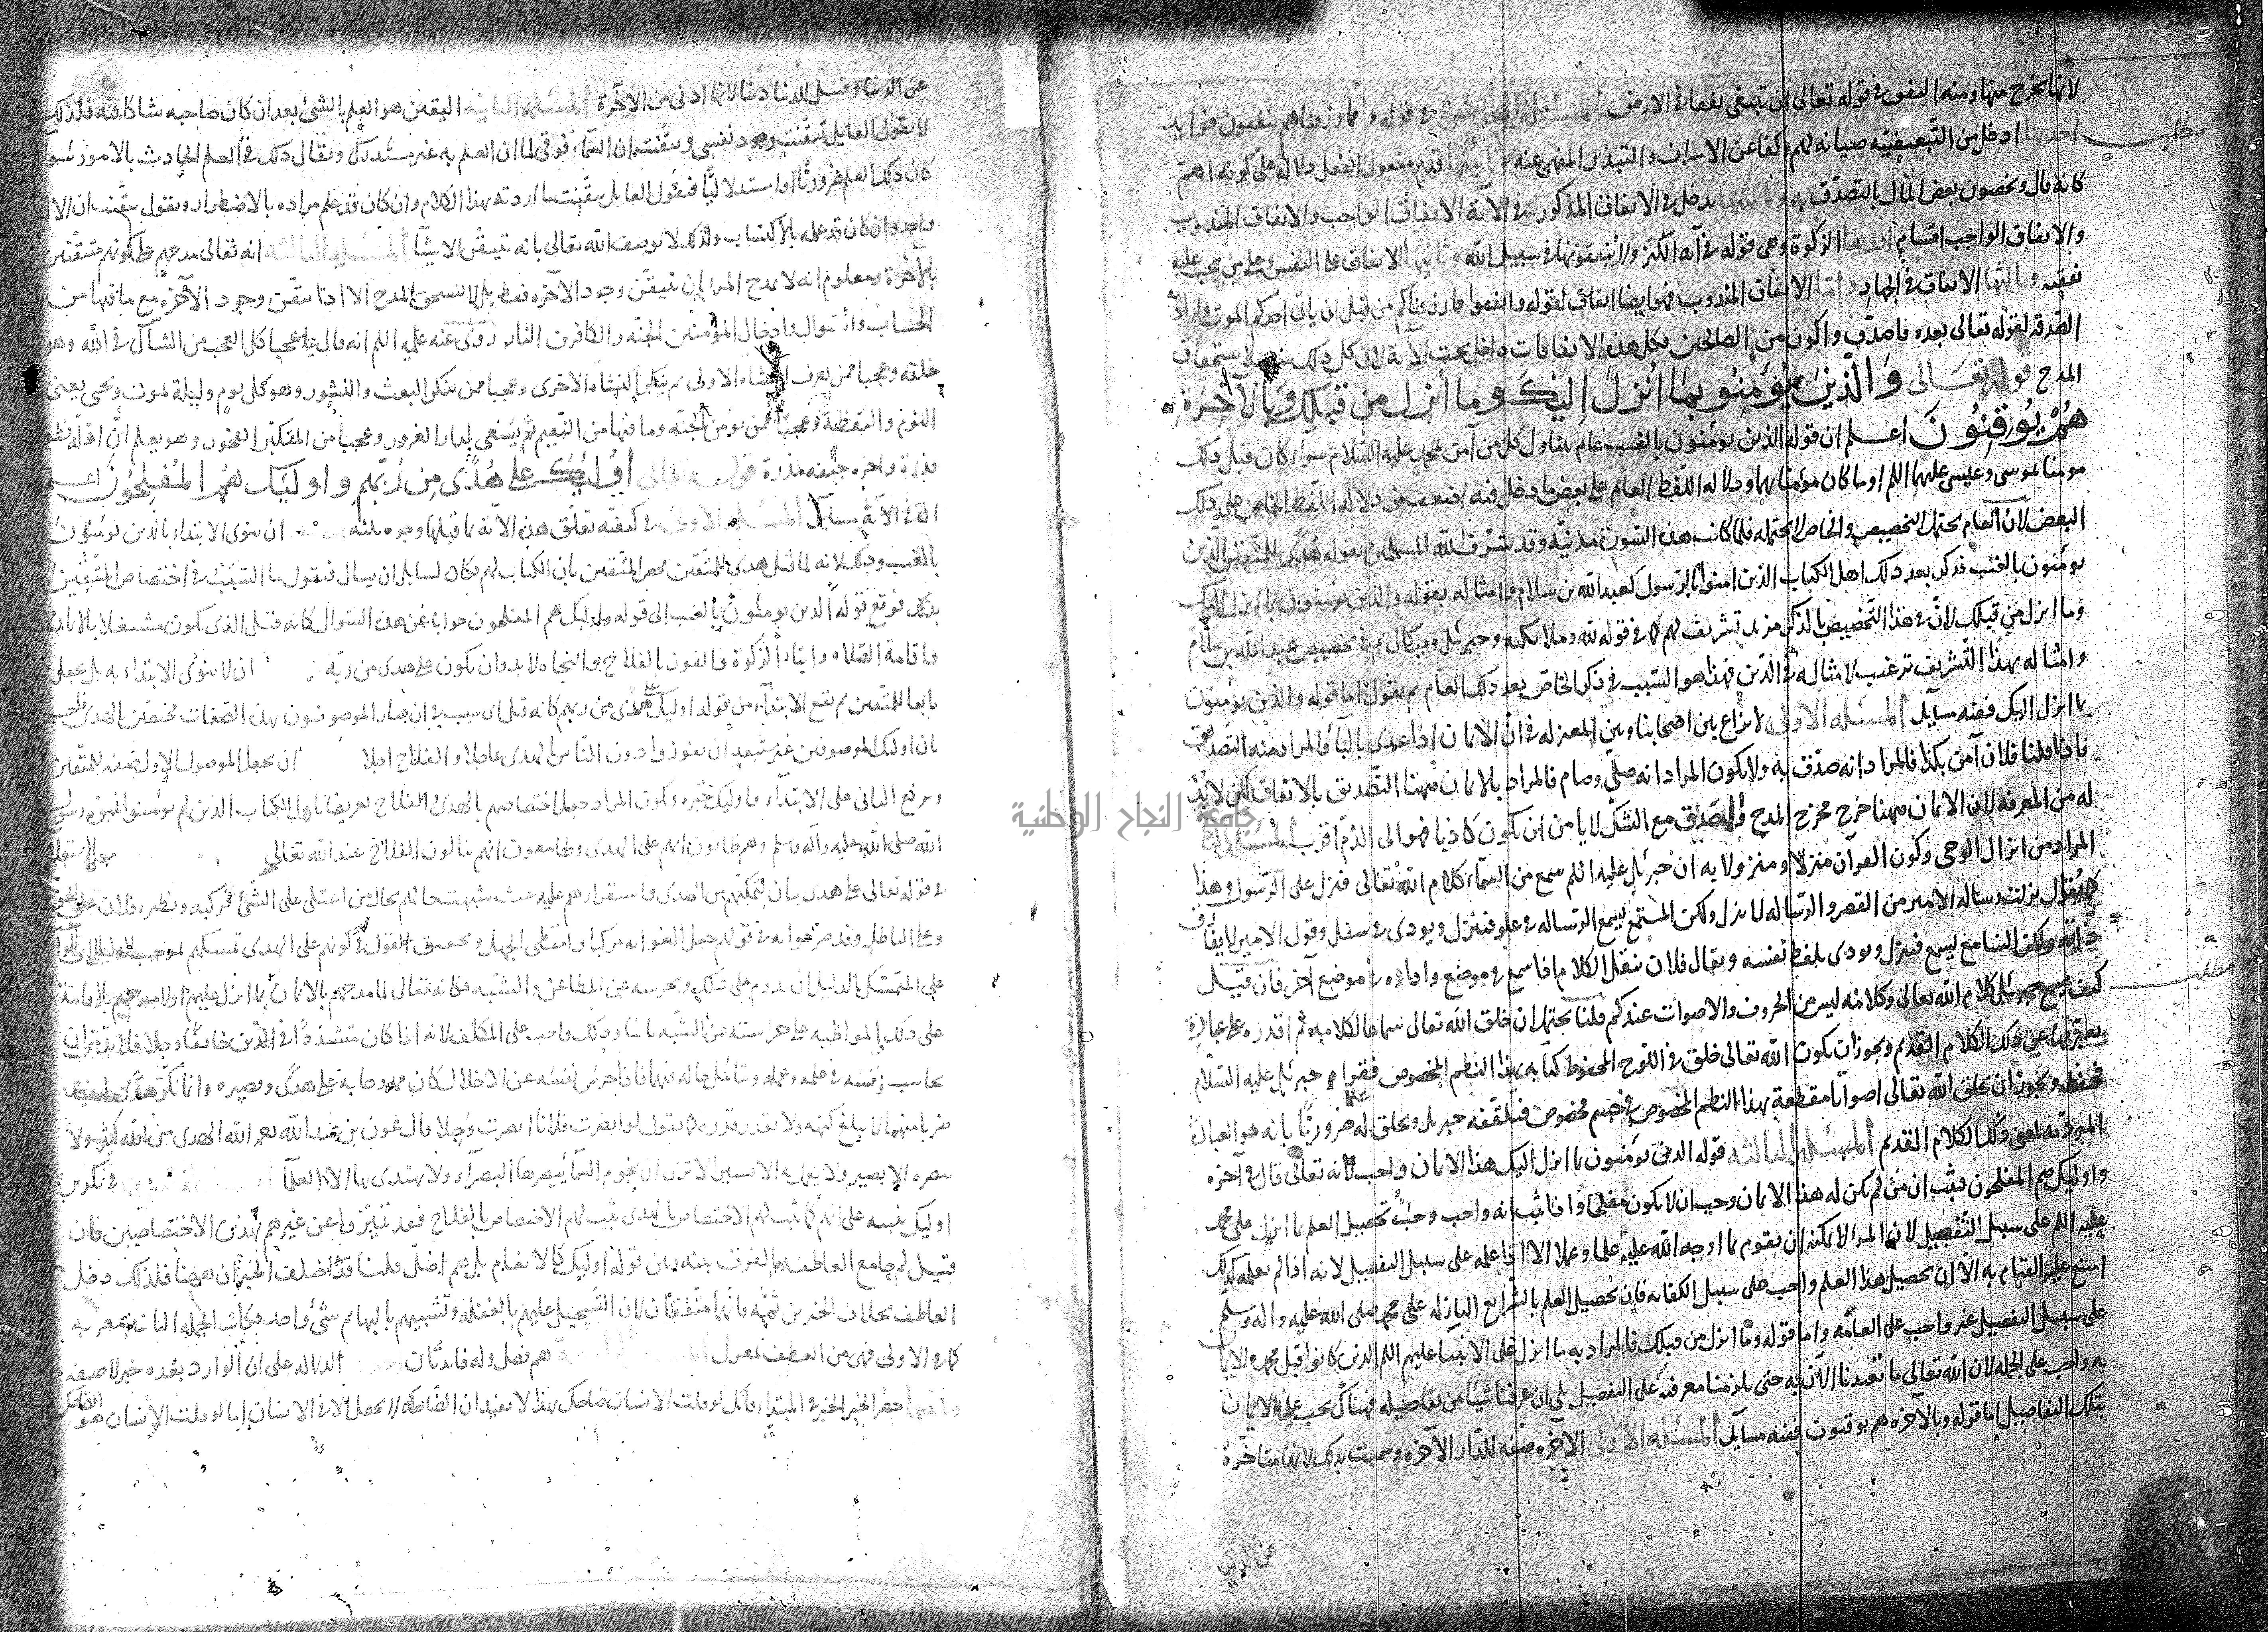 لانها تخرج منها ومنه النفق في قوله تعالى ان تبتغي نفقا في الارض المسئلة العاشرة في قوله ومما رزقناهم ينفقون فوايد
احدها ادخل من التبعيضية صيانة لهم وكفا عن الاسراف والتبذير المنهى عنه وثانيها قدم مفعول الفعل دلالة على كونه اهم
كانه قال ويخصون بعض المال بالتصدق به وثالثها يدخل في الانفاق المذكور في الآية الانفاق الواجب والانفاق المندوب
والانفاق الواجب اقسام احدها الزكوة وهى قوله في آية الكنز ولا ينفقونها في سبيل الله وثانيها الانفاق على النفس وعلى من يجب عليه
نفقته وثالثها الانفاق في الجهاد واما الانفاق المندوب فهو ايضا انفاق لقوله وانفقوا مما رزقناكم من قبل ان ياتى احدكم الموت واراد به
الصدقة لقوله تعالى بعده فاصدق واكون من الصالحين فكل هذه الانفاقات داخل تحت الآية لان كل ذلك سبب لاستحقاق
المدح قوله تعالى والذين يؤمنون بما انزل اليك وما انزل من قبلك وبالآخرة
هم يوقنون اعلم ان قوله الذين يومنون بالغيب عام يتناول كل من آمن بمحمد عليه السلام سواء كان قبل ذلك
مومنا بموسى وعيسى عليهما اللم او ما كان مومنا بهما ودلالة اللفظ العام على بعض ما دخل فيه اضعف من دلالة اللفظ الخاص على ذلك
البعض لان العام يحتمل التخصيص والخاص لا يحتمله فلما كانت هذه السورة مدنية وقد شرف الله المسلمين بقوله هدى للمتقين الذين
يومنون بالغيب فذكر بعد ذلك اهل الكتاب الذين امنوا بالرسول كعبد الله بن سلام وامثاله بقوله والذين يومنون بما انزل اليك
وما انزل من قبلك لان في هذا التخصيص بالذكر مزيد تشريف لهم كما في قوله لله وملائكته وجبرئيل وميكال ثم في تخصيص عبد الله بن سلام
وامثاله بهذا التشريف ترغيب لامثاله في الدين فهذا هو السبب في ذكر الخاص بعد ذلك العام ثم نقول اما قوله والذين يومنون
بما انزل اليك ففيه مسايل المسئلة الاولى لا نزاع بين اصحابنا وبين المعتزلة في ان الايمان اذا عدى بالباء فالمراد منه التصديق
فاذا قلنا فلان آمن بكذا فالمراد انه صدق به ولا يكون المراد انه صلى وصام فالمراد بالايمان ههنا التصديق بالاتفاق لكن لا بد
له من المعرفة لان الايمان ههنا خرج مخرج المدح والمصدق مع الشك لا يامن ان يكون كاذبا فهو الى الذم اقرب المسئلة
المراد من انزال الوحى وكون القرآن منزلا ومنزولا به ان جبرئيل عليه اللم سمع من السماء كلام الله تعالى فنزل على الرسول وهذا
كما يقال نزلت رسالة الامير من القصر والرسالة لا تنزل ولكن المستمع يسمع الرسالة في علو فينزل ويودى في سفل وقول الامير لا يفارق
ذاته ولكن السامع يسمع فينزل ويودى بلفظ نفسه ويقال فلان ينقل الكلام اذا سمع في موضع واداه في موضع آخر فان قيل
كيف سمع جبرئيل كلام الله تعالى وكلامه ليس من الحروف والاصوات عندكم قلنا يحتمل ان خلق الله تعالى سماعا لكلامه ثم اقدره على عبارة
يعبر بها عن ذلك الكلام القديم ويجوز ان يكون الله تعالى خلق في اللوح المحفوظ كتابة بهذا النظم المخصوص فقراه جبرئيل عليه السلام
فحفظه ويجوز ان يخلق الله تعالى اصواتا مقطعة بهذا النظم المخصوص في جسم مخصوص فيتلقفه جبريل ويخلق له علما ضروريا بانه هو العبارة
المودية لمعنى ذلك الكلام القديم المسئلة الثالثة قوله الذين يومنون بما انزل اليك هذا الايمان واجب لانه تعالى قال في آخره
واوليك هم المفلحون فثبت ان من لم يكن له هذا الايمان وجب ان لا يكون مفلحا واذا ثبت انه واجب وجب تحصيل العلم بما انزل على محمد
عليه اللم على سبيل التفصيل لان المرء لا يمكنه ان يقوم بما اوجبه الله عليه علما وعملا الا اذا علمه على سبيل التفصيل لانه اذا لم يعلمه كذلك
امتنع عليه القيام به الا ان تحصيل هذا العلم واجب على سبيل الكفاية فان تحصيل العلم بالشرايع النازلة على محمد صلى الله عليه واله وسلم
على سبيل التفصيل غير واجب على العامة واما قوله وما انزل من قبلك فالمراد به ما انزل على الانبيا عليهم اللم الذين كانوا قبل محمد والايمان
به واجب على الجملة لان الله تعالى ما تعبدنا الآن به حتى يلزمنا معرفته على التفصيل بلى ان عرفنا شيئا من تفاصيله فهناك يجب علينا الايمان
بتلك التفاصيل اما قوله وبالآخرة هم يوقنون ففيه مسايل المسئلة الاولى الآخرة صفة للدار الآخرة وسميت بذلك لانها متاخرة
عن الدنيا
عن الدنيا وقيل للدنيا دنيا لانها ادنى من الآخرة المسئلة الثانية اليقين هو العلم بالشئ بعد ان كان صاحبه شاكا فيه فلذلك
لا يقول القايل تيقنت وجود نفسى وتيقنت ان السماء فوقى لما ان العلم به غير مستدرك ويقال ذلك في العلم الحادث بالامور سواء
كان ذلك العلم ضروريا او استدلاليا فيقول القايل تيقنت ما اردته بهذا الكلام وان كان قد علم مراده بالاضطرار ويقول تيقنت ان الاله
واحد وان كان قد علمه بالاكتساب ولذلك لا يوصف الله تعالى بانه تيقن الاشيآ المسئلة الثالثة انه تعالى مدحهم على كونهم متيقنين
بالآخرة ومعلوم انه لا يمدح المرء بان تيقن وجود الآخرة فقط بل لا يستحق المدح الا اذا تيقن وجود الآخرة مع ما فيها من
الحساب والسوال وادخال المؤمنين الجنة والكافرين النار روى عنه عليه اللم انه قال يا عجبا كل العجب من الشاك في الله وهو
خلقه وعجبا ممن يعرف النشاة الاولى ثم ينكر النشاة الاخرى وعجبا ممن ينكر البعث والنشور وهو كل يوم وليلة يموت ويحيى يعنى
النوم واليقظة وعجبا ممن يومن بالجنة وما فيها من النعيم ثم يسعى لدار الغرور وعجبا من المتكبر الفخور وهو يعلم ان اوله نطفة
مذرة واخره جيفة قذرة قوله تعالى اوليك على هدى من ربهم واوليك هم المفلحون اعلم
ان في الآية مسايل المسئلة الاولى في كيفية تعلق هذه الآية بما قبلها وجوه ثلثة ان ينوى الابتداء بالذين يومنون
بالغيب وذلك لانه لما قيل هدى للمتقين فخص المتقين بان الكتاب لهم فكان لسايل ان يسال فيقول ما السبب في اختصاص المتقين
بذلك فوقع قوله الذين يومنون بالغيب الى قوله واوليك هم المفلحون جوابا عن هذا السوال كانه قيل الذى يكون مشتغلا بالايمان
واقامة الصلاة وايتاء الزكوة والفوز بالفلاح والنجاة لا بد وان يكون على هدى من ربه ان لا ينوى الابتداء به بل يجعله
تابعا للمتقين ثم يقع الابتداء من قوله اوليك على هدى من ربهم كانه قيل اى سبب في ان صار الموصوفون بهذه الصفات مختصين بالهدى فاجيب
بان اوليك الموصوفين غير مستبعد ان يفوزوا دون الناس بالهدى عاجلا وبالفلاح اجلا ان يجعل الموصول الاول صفة للمتقين
ويرفع الثانى على الابتداء واوليك خبره ويكون المراد جعل اختصاصهم بالهدى والفلاح تعريضا باهل الكتاب الذين لم يومنوا بنبوة رسول
الله صلى الله عليه وآله وسلم وهم ظانون انهم على الهدى وطامعون انهم ينالون الفلاح عند الله تعالى معنى الاستعلاء
في قوله تعالى على هدى بيان لتمكنهم من الهدى واستقرارهم عليه حيث شبهت حالهم بحال من اعتلى على الشئ وركبه ونظيره فلان على الحق
وعلى الباطل وقد صرحوا به في قولهم جعل الغواية مركبا وامتطى الجهل وتحقيق القول في كونهم على الهدى تمسكهم بموجب الدليل لان الواجب
على المتمسك بالدليل ان يدوم على ذلك ويحرسه عن المطاعن والشبه فكانه تعالى لما مدحهم بالايمان بما انزل عليهم اولا مدحهم بالاقامة
على ذلك والمواظبة على حراسته عن الشبه ثانيا وذلك واجب على المكلف لانه اذا كان متشددا في الدين خايفا وجلا فلا بد من ان
يحاسب نفسه في علمه وعمله ويتامل حاله فيهما فاذا حرس نفسه عن الاخلال كان ممدوحا بانه على هدى وبصيرة وانما نكر هدى ليفيد
ضربا مبهما لا يبلغ كنهه ولا يقدر قدره كما تقول لو ابصرت فلانا ابصرت رجلا قال عون بن عبد الله الهدى من الله كثير ولا
يبصره الا بصير ولا يعمل به الا يسير الا ترى ان نجوم السماء يبصرها البصراء ولا يهتدى بها الا العلما في تكرير
اوليك تنبيه على انهم كما ثبت لهم الاختصاص بالهدى ثبت لهم الاختصاص بالفلاح فقد تميزوا عن غيرهم بهذين الاختصاصين فان
قيل لم جا مع العاطف وما الفرق بينه وبين قوله اوليك كالانعام بل هم اضل قلنا قد اختلف الخبران ههنا فلذلك دخل
العاطف بخلاف الخبرين ثمه فانهما متفقان لان التسجيل عليهم بالغفلة وتشبيههم بالبهايم شئ واحد وكانت الجملة الثانية مقررة
لما في الاولى فهى من العطف بمعزل هم فصل وله فايدتان الدلالة على ان الوارد بعده خبر لا صفة
وثانيها حصر الخبر في المبتداء فانك لو قلت الانسان ضاحك فهذا لا يفيد ان الضاحكية لا تحصل الا في الانسان اما لو قلت الانسان هو الضاحك
جامعة النجاح الوطنية